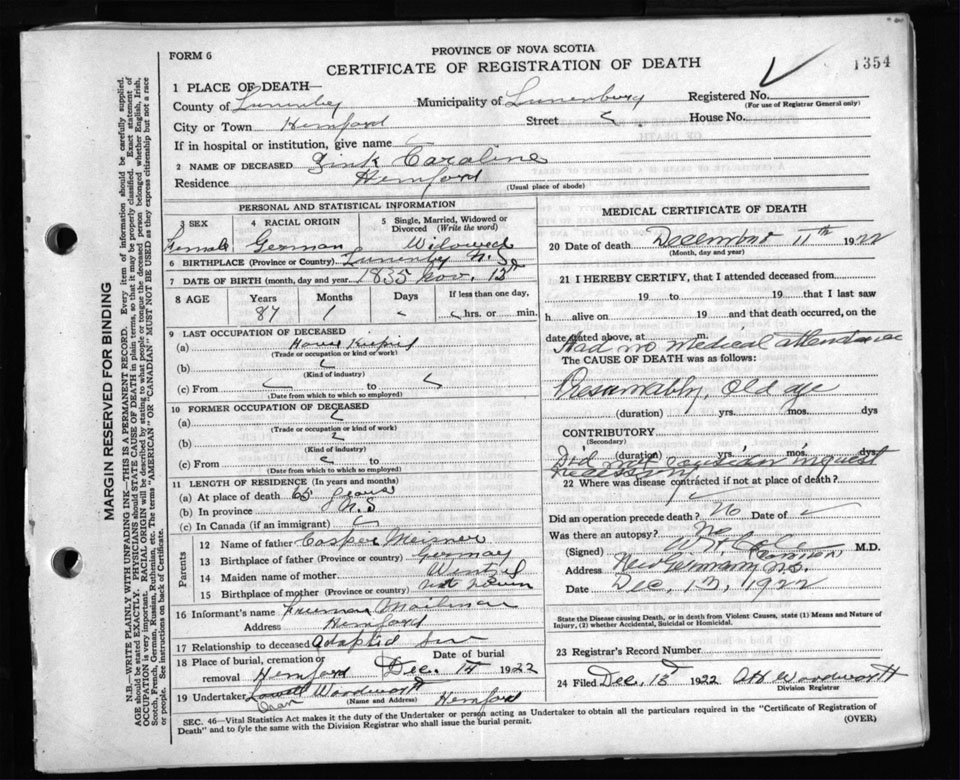 FORM 6
PROVINCE OF NOVA SCOTIA
CERTIFICATE OF REGISTRATION OF DEATH
1354
1 PLACE OF DEATH—
County of Lunenburg Municipality of Lunenburg Registered No.
(For use of Registrar General only)
City or Town Hemford Street House No.
If in hospital or institution, give name
2 NAME OF DECEASED Zink Caroline
Residence Hemford
(Usual place of abode)
PERSONAL AND STATISTICAL INFORMATION
3 SEX 4 RACIAL ORIGIN 5 Single, Married, Widowed or Divorced (Write the word)
Female German Widowed
6 BIRTHPLACE (Province or Country) N. S.
7 DATE OF BIRTH (month, day and year) 1835 Nov. 13th
8 AGE Years Months Days If less than one day,
87 1 hrs. or min.
9 LAST OCCUPATION OF DECEASED
(a) House
(Trade or occupation or kind of work)
(b)
(Kind of industry)
(c) From to
(Date from which to which so employed)
10 FORMER OCCUPATION OF DECEASED
(a)
(Trade or occupation or kind of work)
(b)
(Kind of industry)
(c) From to
(Date from which to which so employed)
11 LENGTH OF RESIDENCE (In years and months)
(a) At place of death 65 years
(b) In province N.S
(c) In Canada (if an immigrant)
Parents
12 Name of father Casper Meisner
13 Birthplace of father (Province or country) Germany
14 Maiden name of mother
15 Birthplace of mother (Province or country) not
16 Informant's name Freeman Mailman
Address Hemford
17 Relationship to deceased Adapted Son
18 Place of burial, cremation or removal Hemford Date of burial Dec. 14 1922
19 Undertaker Woodworth Hemford
(Name and Address)
MEDICAL CERTIFICATE OF DEATH
20 Date of death December 11th 1922
(Month, day and year)
21 I HEREBY CERTIFY, that I attended deceased from
19 to 19 that I last saw
h alive on 19 and that death occurred, on the
date stated above, at m.
Had no medical attendance
The CAUSE OF DEATH was as follows:
Presumably, Old age
(duration) yrs. mos. dys
CONTRIBUTORY
(Secondary)
(duration) yrs. mos. dys.
Did not inquest necessary
22 Where was disease contracted if not at place of death?
Did an operation precede death? No Date of
Was there an autopsy? No
(Signed) M.D.
Address New Germany N.S.
Date Dec, 13, 1922
State the Disease causing Death, or in death from Violent Causes, state (1) Means and Nature of
Injury, (2) whether Accidental, Suicidal or Homicidal.
23 Registrar's Record Number
24 Filed Dec, 13 1922 Woodworth
Division Registrar
SEC. 46—Vital Statistics Act makes it the duty of the Undertaker or person acting as Undertaker to obtain all the particulars required in the "Certificate of Registration of
Death" and to fyle the same with the Division Registrar who shall issue the burial permit.
(OVER)
MARGIN RESERVED FOR BINDING
N.B.—WRITE PLAINLY WITH UNFADING INK—THIS IS A PERMANENT RECORD. Every item of information should be carefully supplied.
AGE should be stated EXACTLY. PHYSICIANS should STATE CAUSE OF DEATH in plain terms, so that it may be properly classified. Exact statement of
OCCUPATION is very important. RACIAL ORIGIN will be described by stating to what people or tongue the deceased person belonged whether English, Irish,
Scotch, French, German, Russian, Ruthenian, etc. The terms "AMERICAN" or "CANADIAN" MUST NOT BE USED as they express citizenship but not a race
or people. See instructions on back of Certificate.